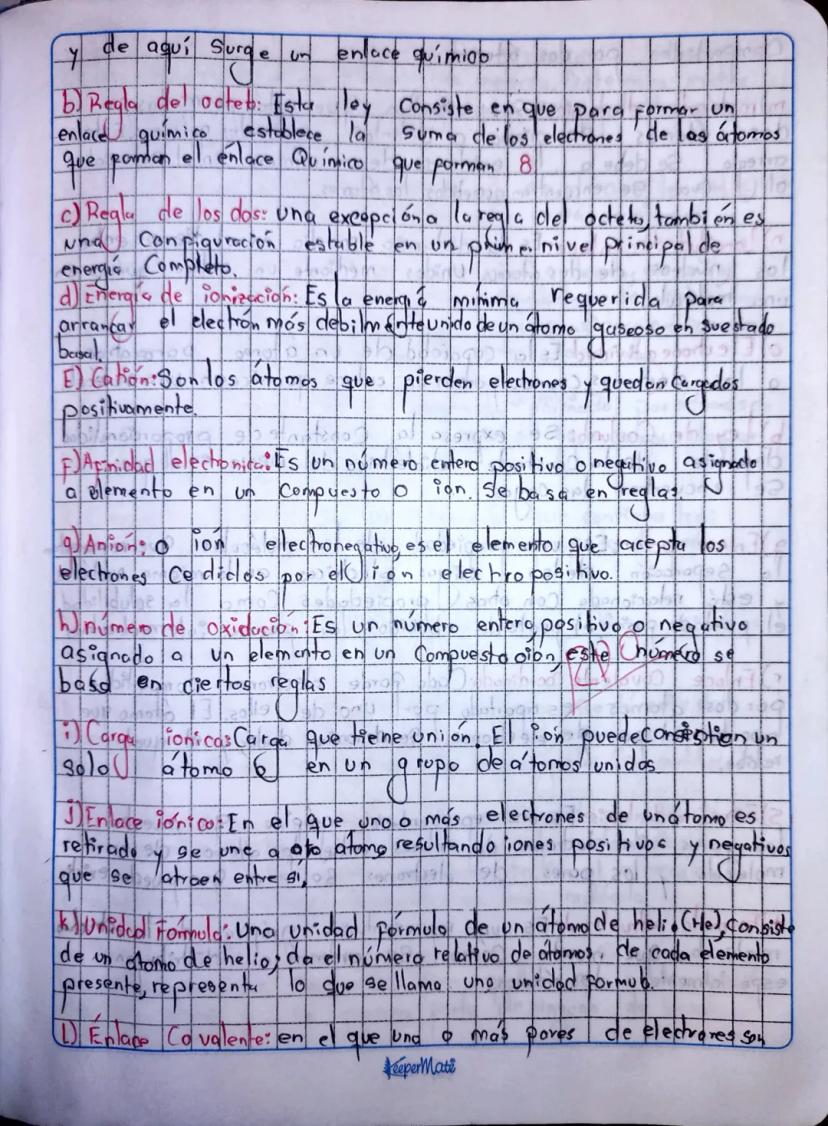 y de aquí surge un enlace químico
b) Regla del octeto: Esta ley consiste en que para formar un
enlace químico establece la suma de los electrones de las átomos
que forman el énlace Químico que forman 8
c) Regla de los dos: una excepción a la regla del octeto, también es
una configuración estable en un nivel principal de
energía completo.
d) Energía de ionización: Es la energía mínima requerida para
arrancar el electrón más debilmente unido de un átomo gaseoso en su estado
basal.
E) Catión: Son los átomos que pierden electrones y quedan cargados
positivamente.
F) Afinidad electronica: Es un número entero positivo o negativo asignado
a elemento en un compuesto o ion. Se basa en reglas.
g) Anión: o ión electronegativo, es el elemento que acepta los
electrones cedidos por el ion electropositivo.
h) número de oxidación: Es un número entero positivo o negativo
asignado a un elemento en un compuesto o ión, este número se
basa en ciertos reglas
i) Carga ionica: Carga que tiene unión. El ion puede un
solo átomo ó en un grupo de átomos unidos
j) Enlace iónico: En el que uno o más electrones de un átomo es
retirado y se une a otro atomo resultando iones positivos y negativos
que se atraen entre sí,
k) Unidad Fórmula: Una unidad fórmula de un átomo de helio (He), consiste
de un atomo de helio; da el número relativo de átomos. de cada elemento
presente, representa lo que se llama una unidad formula.
L) Énlace Covalente: en el que una o más pares de electrones son
KeeperMate